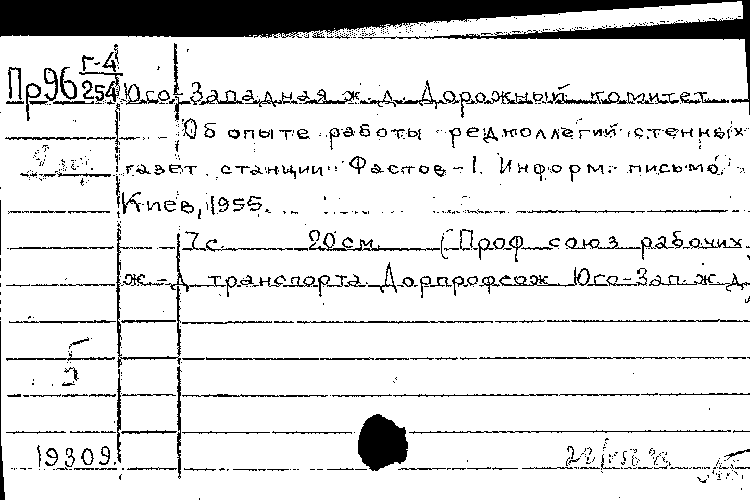 Пр96 Г-4
254
Юго-Западная ж.д. Дорожный комитет
Об опыте работы редколлегий стенных
газет станции Фастов-1. Информ. письмо.
Киев, 1955.
7 с. 20 см. (Проф. союз рабочих
ж-д. транспорта Дорпрофсож Юго-Зап. ж.д.
Б
19309.